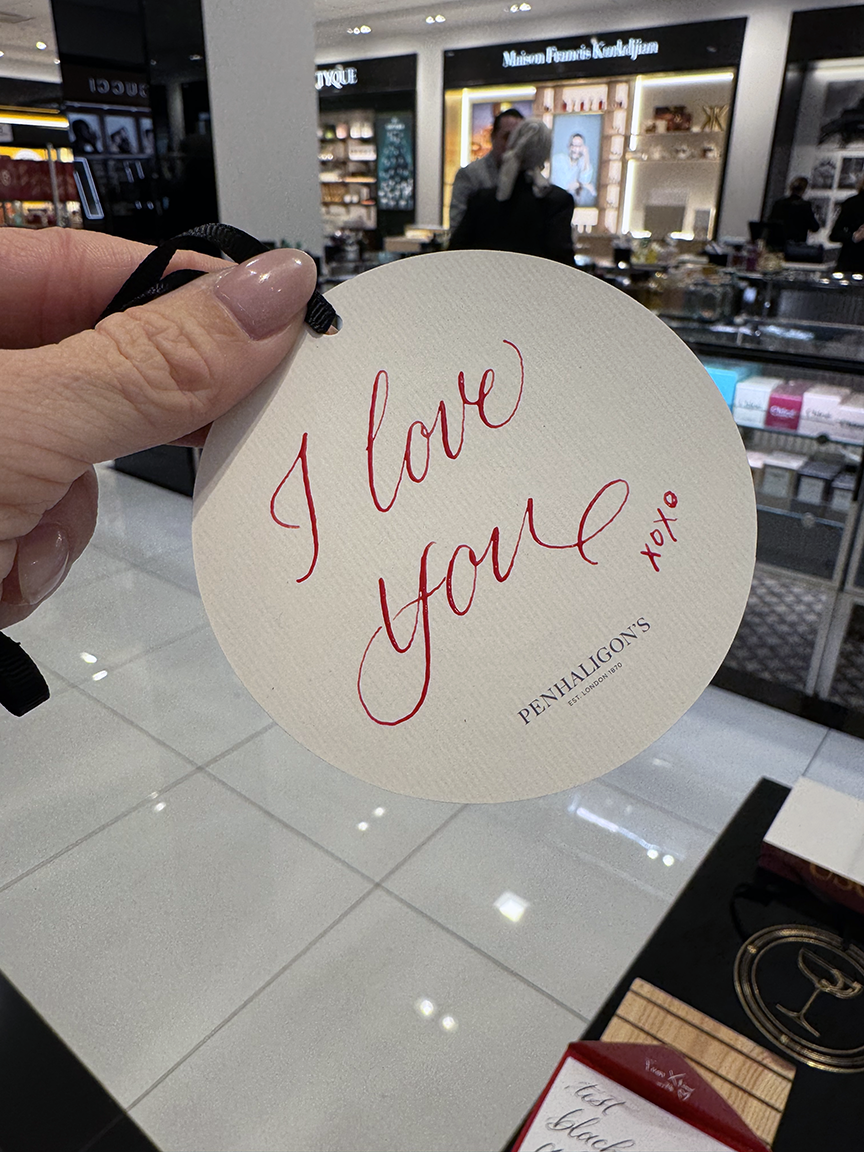 Maison Francis Kurkdjian
TYQUE
GUCCI
I love
you
xoxo
PENHALIGON'S
EST. LONDON 1870
test
black